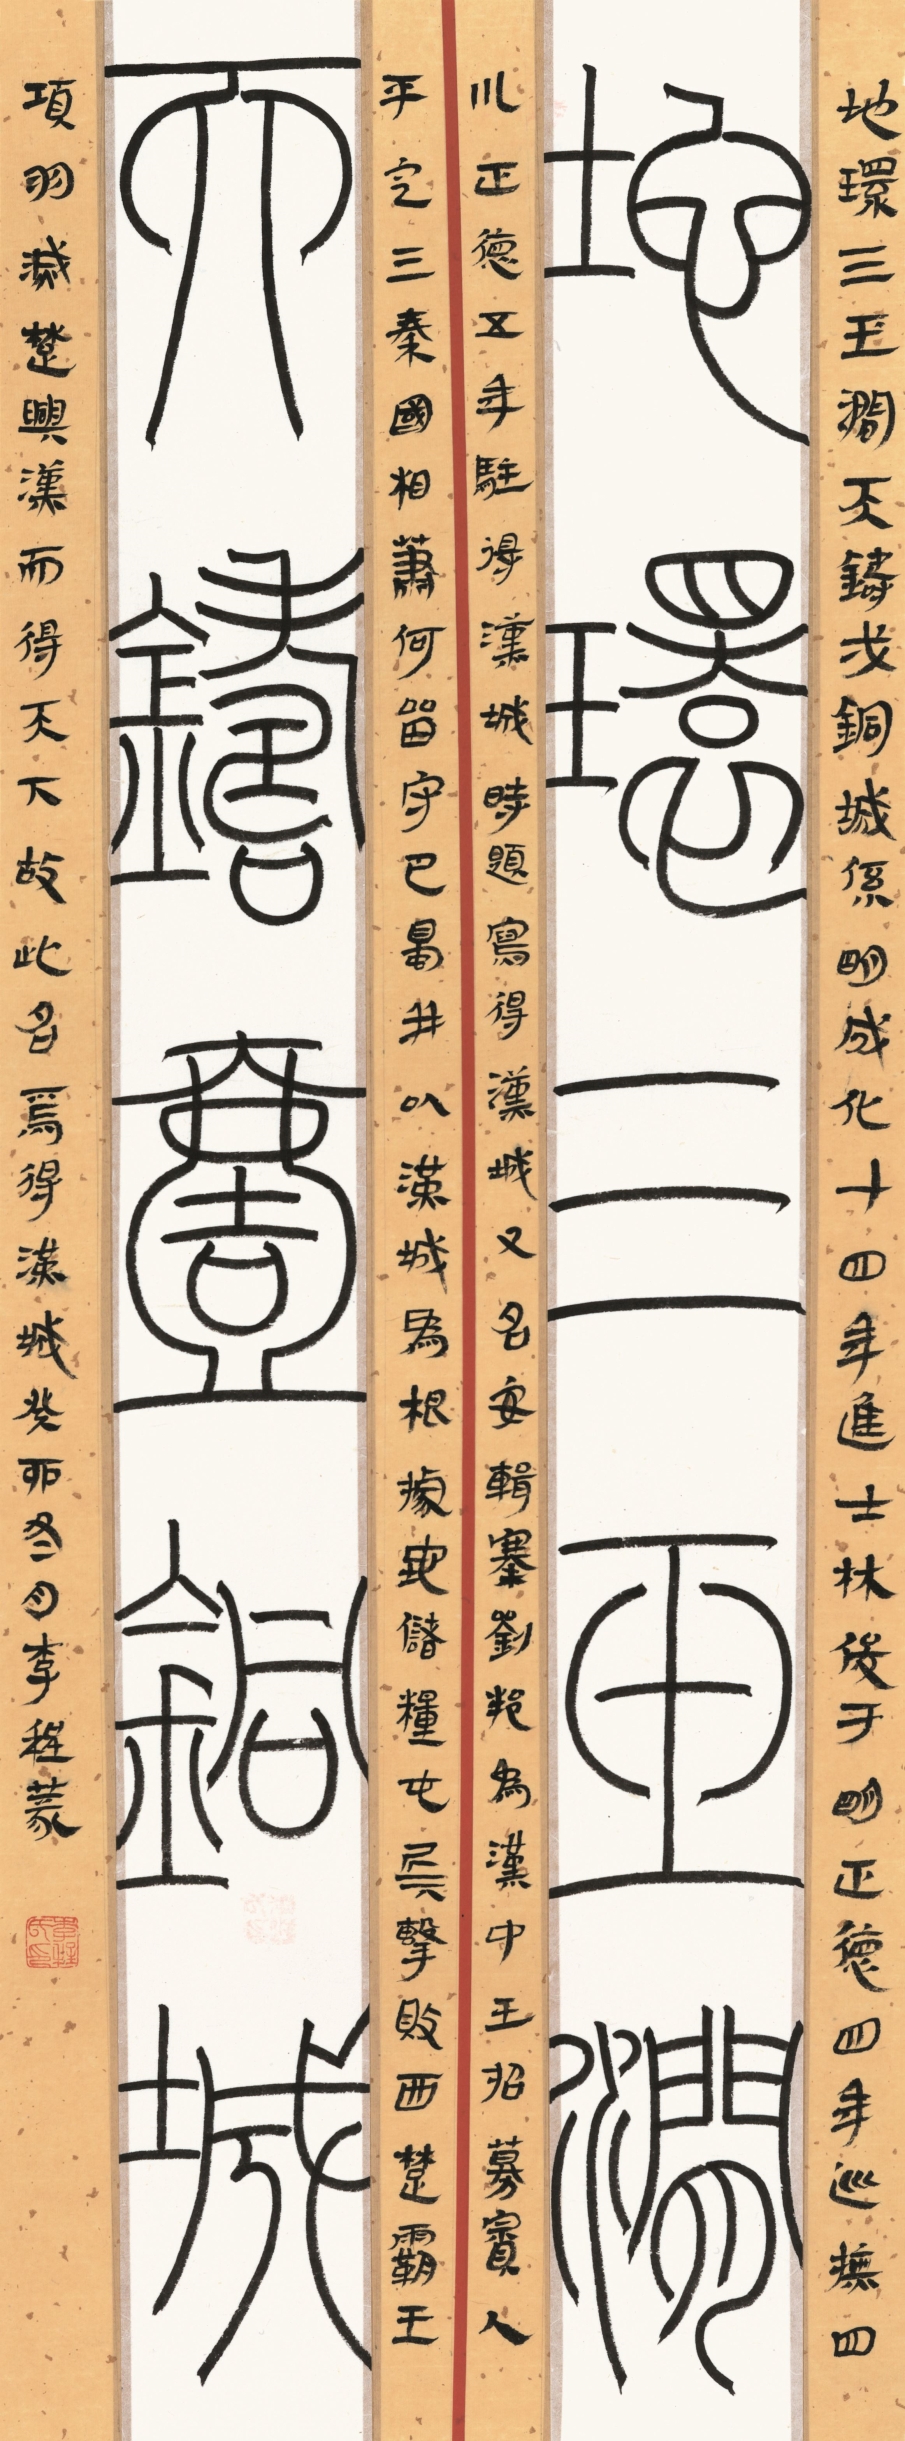 地環三玉澗天鑄弌銅城係明成化十四年進士林俊于明正德四年巡撫四
地環三玉澗
川正德五年駐得漢城時題寫得漢城又名安輯寨劉邦為漢中王招募賓人
平定三秦國相蕭何留守巴蜀并以漢城為根據地儲糧屯兵擊敗西楚霸王
天鑄壹銅城
項羽滅楚興漢而得天下故此名焉得漢城癸卯冬月李程蒙